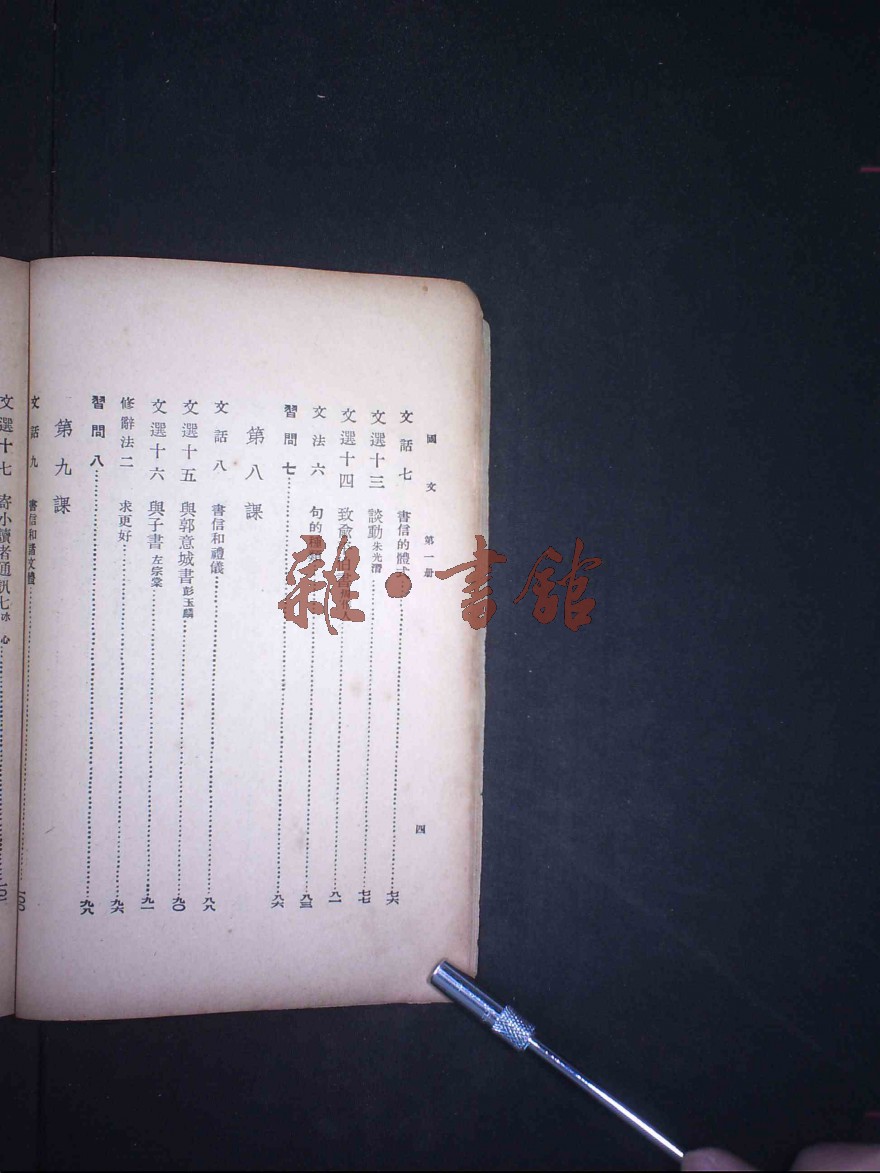 國文 第一册
四
文話七 書信的體式 七六
文選十三 談動 朱光潛 七七
文選十四 致俞 書 八一
文法六 句的種類 八三
習問七 八六
第八課
文話八 書信和禮儀 八八
文選十五 與郭意城書 彭玉麟 九〇
文選十六 與子書 左宗棠 九一
修辭法二 求更好 九六
習問八 九八
第九課
文話九 書信和語文體 一〇〇
文選十七 寄小讀者通訊七 冰心 一〇一
雜·書館